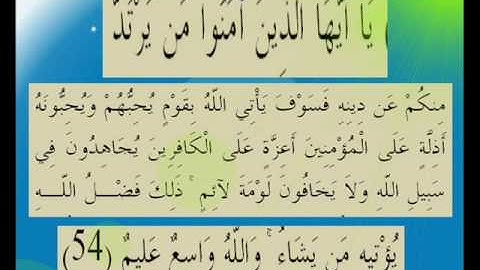 ) يَا أَيُّهَا الَّذِينَ آمَنُوا مَن يَرْتَدَّ
مِنكُمْ عَن دِينِهِ فَسَوْفَ يَأْتِي اللَّهُ بِقَوْمٍ يُحِبُّهُمْ وَيُحِبُّونَهُ
أَذِلَّةٍ عَلَى الْمُؤْمِنِينَ أَعِزَّةٍ عَلَى الْكَافِرِينَ يُجَاهِدُونَ فِي
سَبِيلِ اللَّهِ وَلَا يَخَافُونَ لَوْمَةَ لَائِمٍ ۚ ذَٰلِكَ فَضْلُ اللَّهِ
يُؤْتِيهِ مَن يَشَاءُ ۚ وَاللَّهُ وَاسِعٌ عَلِيمٌ (54)